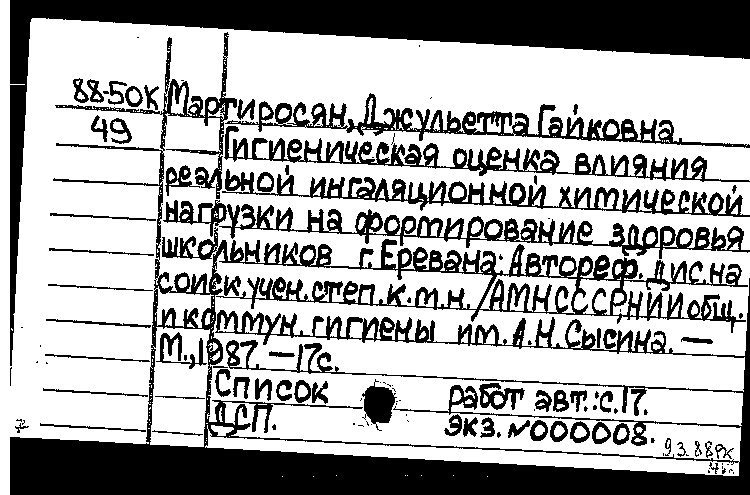 88-50К Мартиросян, Джульетта Гайковна.
49
Гигиеническая оценка влияния
реальной ингаляционной химической
нагрузки на формирование здоровья
школьников г. Еревана: Автореф. дис. на
соиск. учен. степ. к.м.н. /АМН СССР, НИИ общ.
и коммун. гигиены им. А.Н. Сысина. —
М., 1987. — 17с.
Список работ авт.: с. 17.
ДСП. экз. №000008.
9.3.88РК